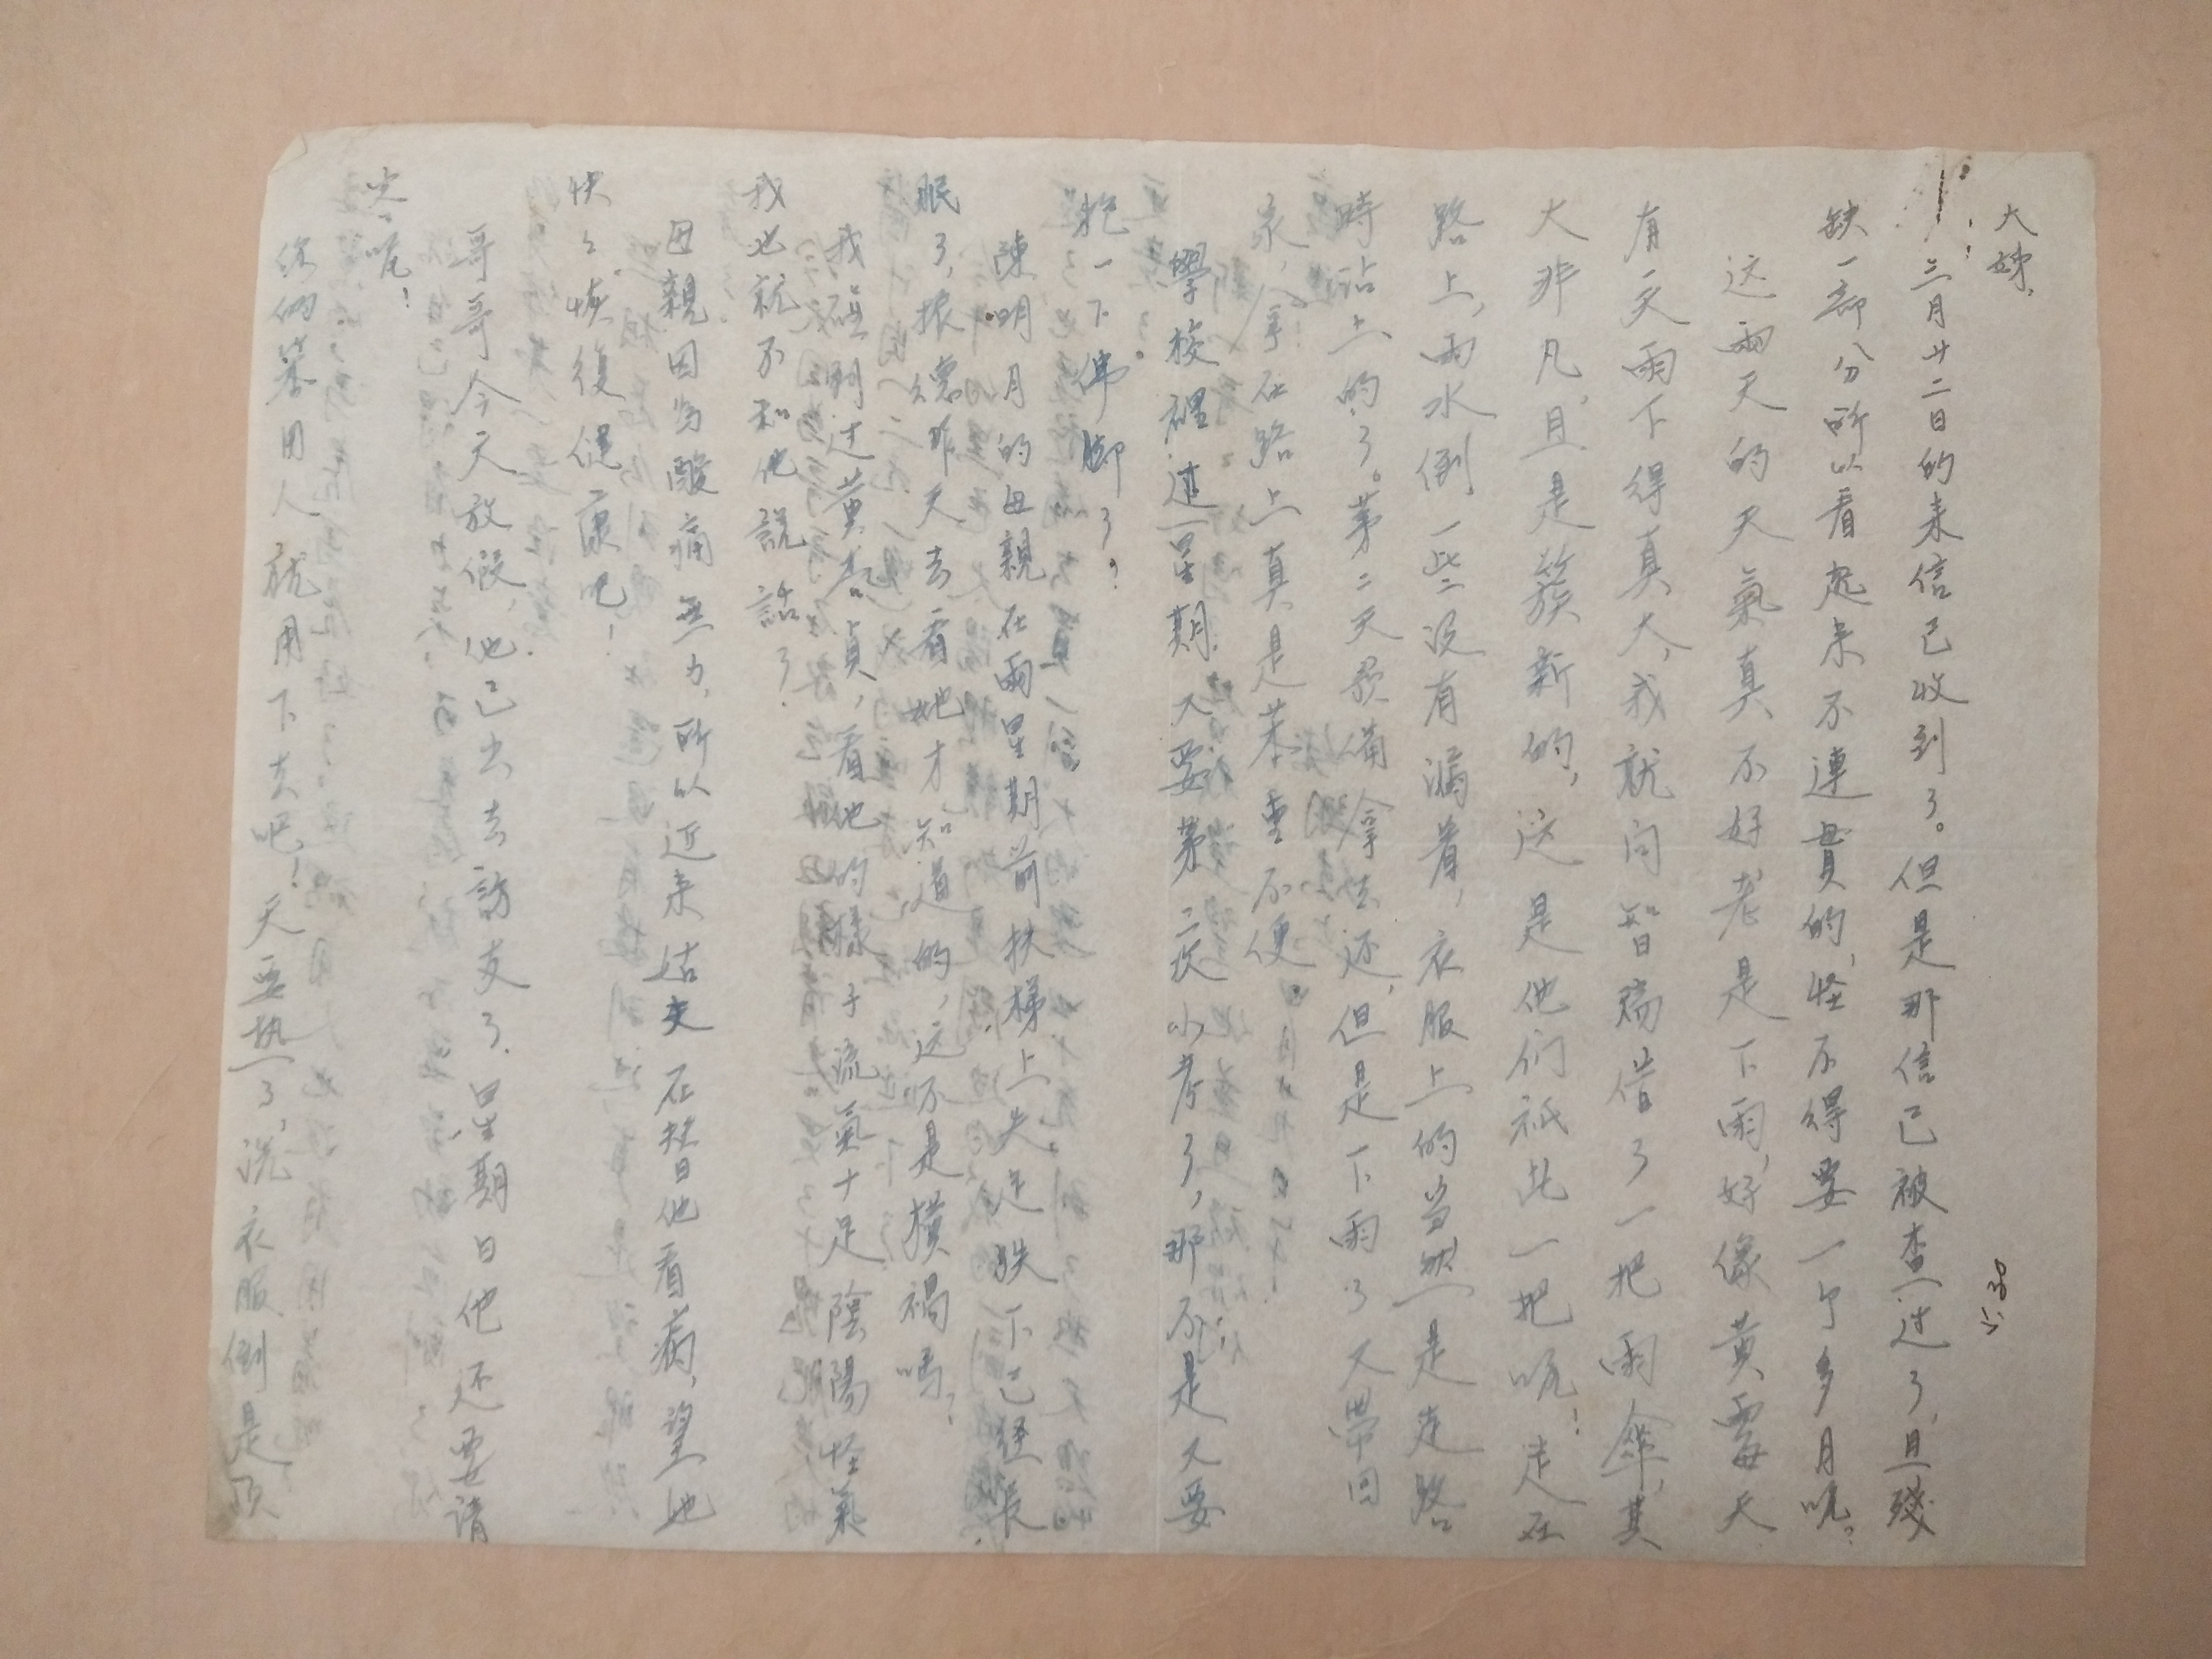 大姊,
5.30
三月廿二日的来信已收到了。但是那信已被查过了,且殘
缺一部分所以看起来不連貫的,怪不得要一个多月呢?
这兩天的天氣真不好,老是下雨,好像黃霉天
有一天雨下得真大,我就向智瑞借了一把雨傘,其
大非凡,且是簇新的,这是他们祇此一把呢!走在
路上,雨水倒一些没有漏着,衣服上的当然是走路
時沾上的了。第二天預備拿去还,但是下雨了又帶回
家,拿在路上真是笨重不便
學校裡過一星期又要第二次小考了,那不是又要
抱一下佛脚了?
陳明月的母親在兩星期前扶梯上失足跌下已經長
眠了,振德昨天去看她才知道的,这不是橫禍嗎?
我碰到过黃貞,看他的樣子流氣十足陰陽怪氣
我也就不和他說話了
母親因为酸痛無力,所以近来姑丈在替他看病,望他
快々恢復健康吧!
哥哥今天放假,他已出去訪友了.星期日他还要請
客呢!
你們等用人就用下去吧!天要热了,洗衣服倒是頂